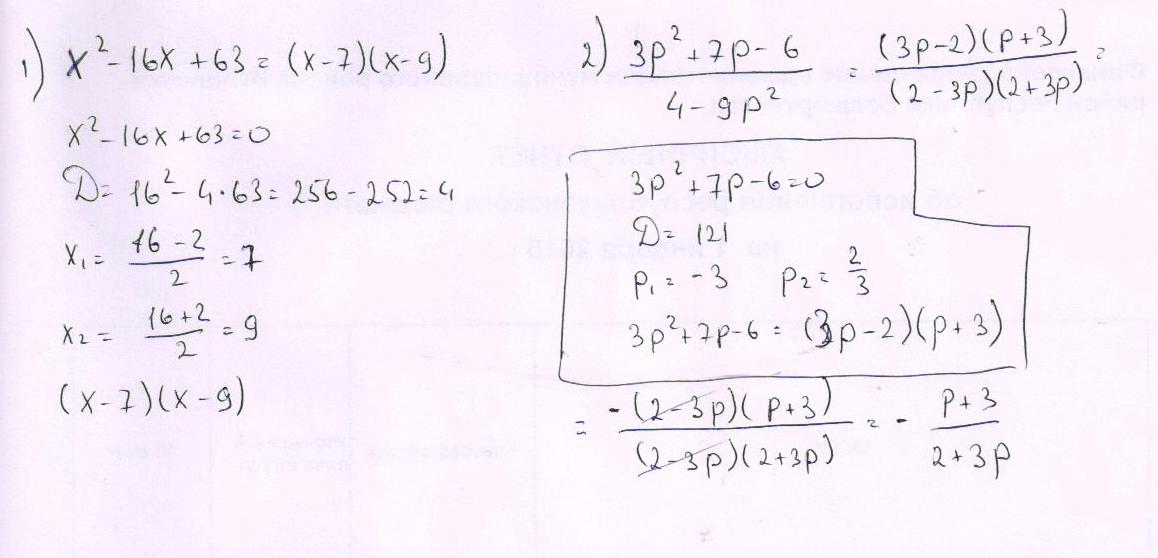 1) x² - 16x + 63 = (x-7)(x-9)
x² - 16x + 63 = 0
D = 16² - 4·63 = 256 - 252 = 4
x₁ = (16 - 2)/2 = 7
x₂ = (16 + 2)/2 = 9
(x-7)(x-9)
2) (3p² + 7p - 6)/(4 - 9p²) (3p-2)(p+3)/((2-3p)(2+3p)) =
3p² + 7p - 6 = 0
D = 121
p₁ = -3 p₂ = 2/3
3p² + 7p - 6 = (3p-2)(p+3)
= -(2-3p)(p+3)/((2-3p)(2+3p)) = - (p+3)/(2+3p)